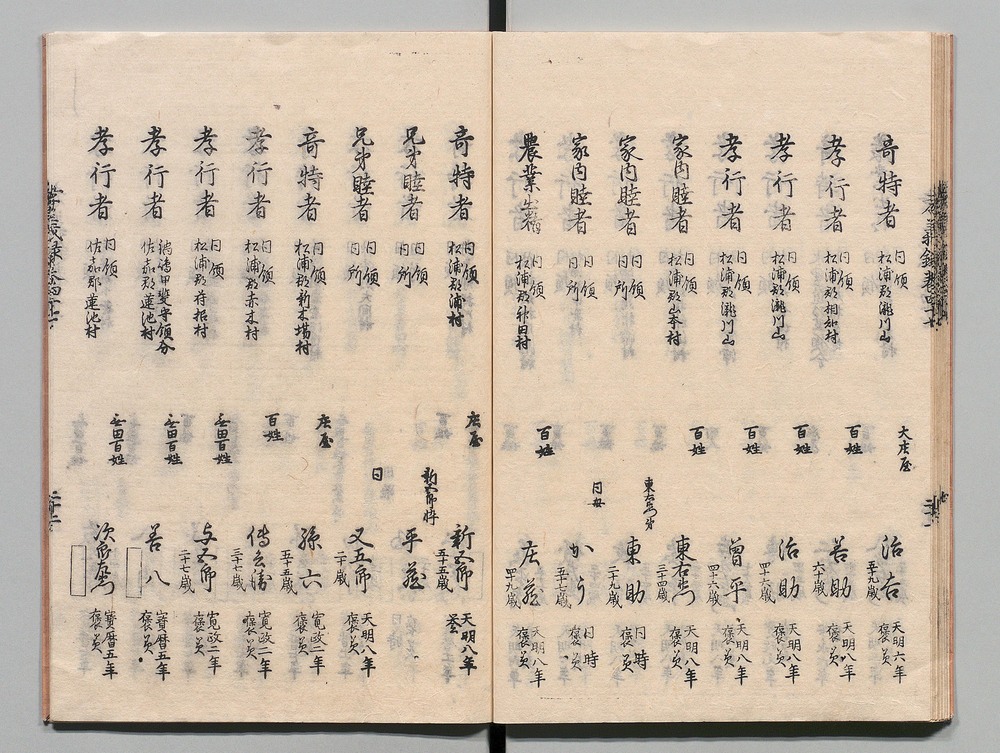 奇特者 同領 松浦郡瀧川山 大庄屋 治右 五十九歳 天明六年 褒美
孝行者 同領 松浦郡相知村 百姓 善助 六十歳 天明八年 褒美
孝行者 同領 松浦郡瀧川山 百姓 治助 四十六歳 天明八年 褒美
孝行者 同領 松浦郡瀧川山 百姓 曾平 四十六歳 天明八年 褒美
家内睦者 同領 松浦郡山本村 百姓 東右衛門 三十四歳 天明八年 褒美
家内睦者 同領 同所 東右衛門弟 東助 二十九歳 同時 褒美
家内睦者 同領 同所 同母 かう 五十七歳 同時 褒美
農業出精 同領 松浦郡和田村 百姓 庄蔵 四十九歳 天明八年 褒美
奇特者 同領 松浦郡浦村 庄屋 新五郎 五十五歳 天明八年
兄弟睦者 同領 同所 新五郎悴 平蔵
兄弟睦者 同領 同所 同 又五郎 二十歳 天明八年 褒美
奇特者 同領 松浦郡新木場村 庄屋 孫六 五十五歳 寛政二年 褒美
孝行者 同領 松浦郡赤木村 百姓 傳右衛 三十七歳 寛政二年 褒美
孝行者 同領 松浦郡苻招村 無田百姓 与五郎 二十七歳 寛政二年 褒美
孝行者 鍋嶋甲斐守領分 佐嘉郡蓮池村 無田百姓 善八 寳暦五年 褒美
孝行者 同領 佐嘉郡蓮池村 無田百姓 次郎左衛門 寳暦五年 褒美